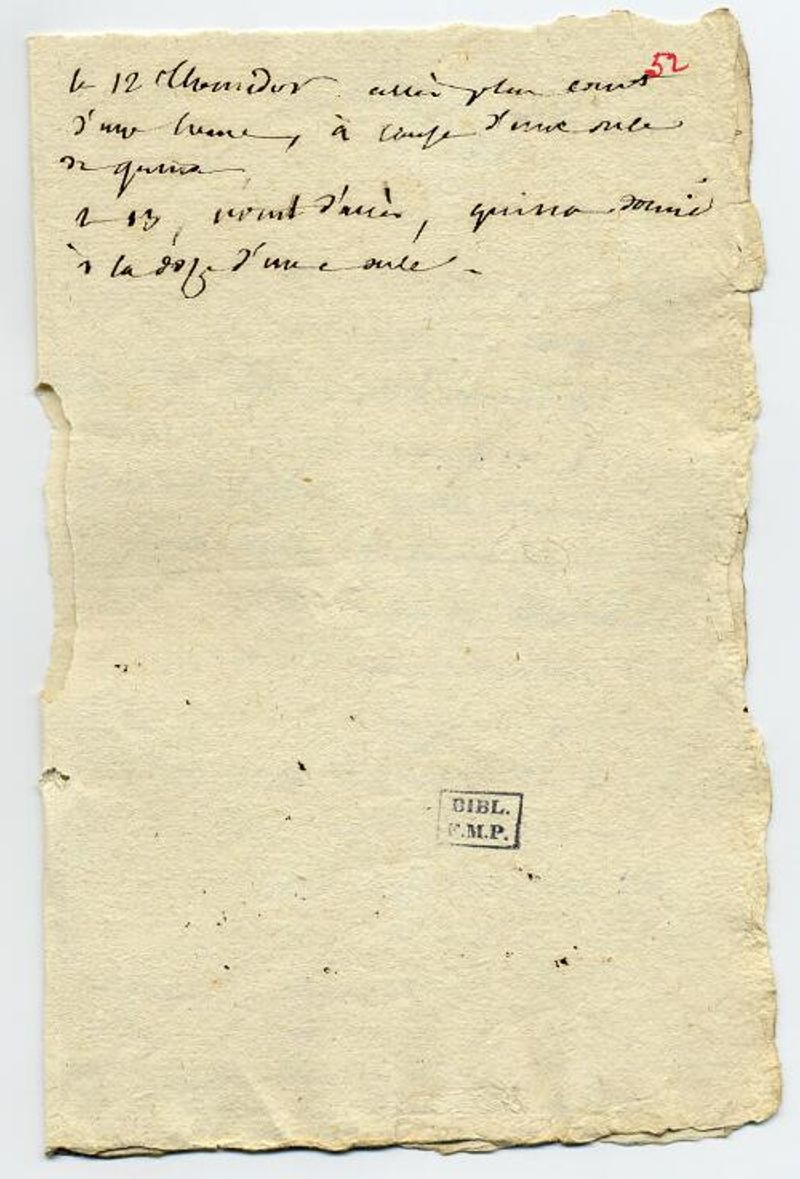 52
le 12 Thermidor accès plus court
d'une heure, à cause d'une once
de quina
le 13, point d'accès, quina donné
à la dose d'une once.
BIBL.
F.M.P.